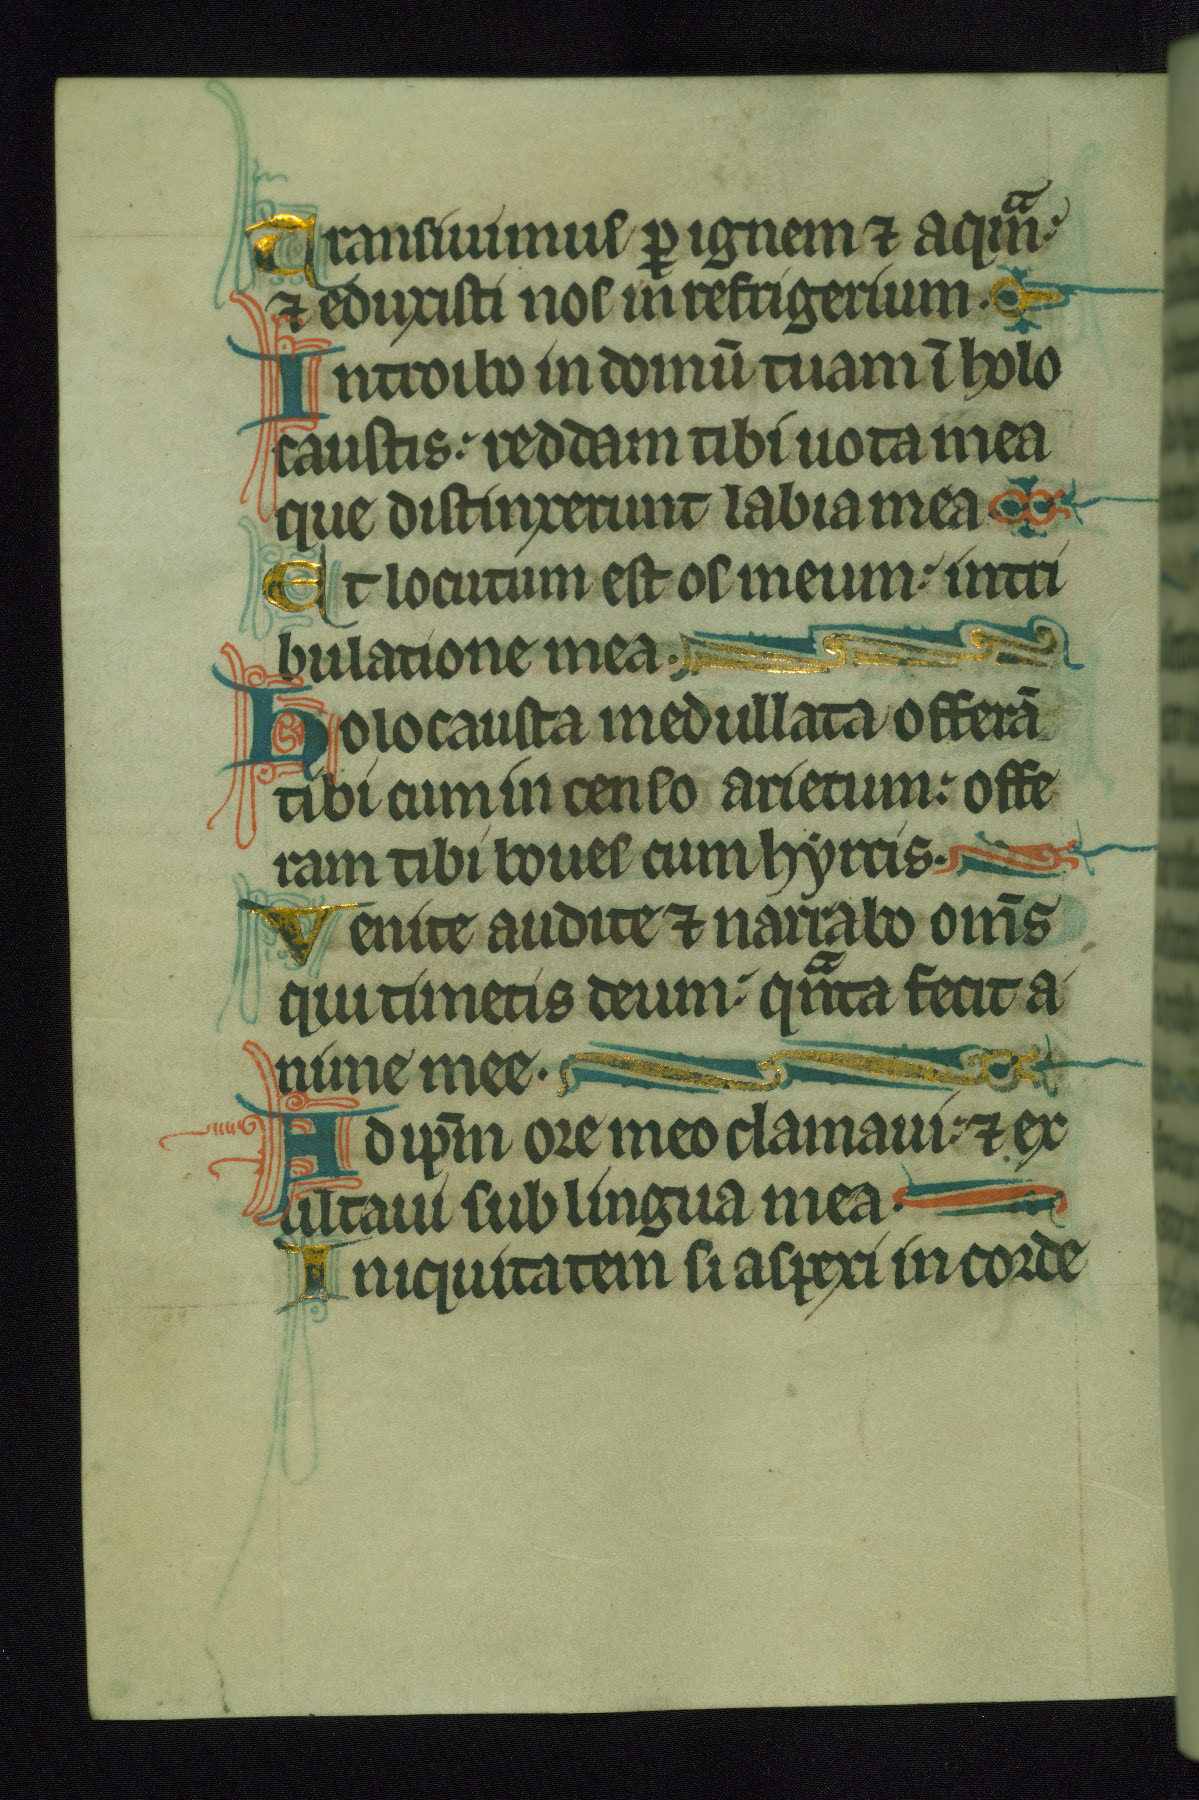 Transiuimus ꝑ ignem ⁊ aqm̄:
⁊ eduxisti nos in refrigerium.
Introibo in domū tuam ī holo
caustis: reddam tibi uota mea
que distinxerunt labia mea
Et locutum est os meum: in tri
bulatione mea.
Holocausta medullata offerā
tibi cum in censo arietum: offe
ram tibi boues cum hyrcis.
Venite audite ⁊ narrabo om̄s
qui timetis deum: qᷓnta fecit a
nime mee.
Ad ip̄m ore meo clamaui: ⁊ ex
ultaui sub lingua mea.
Iniquitatem si aspexi in corde